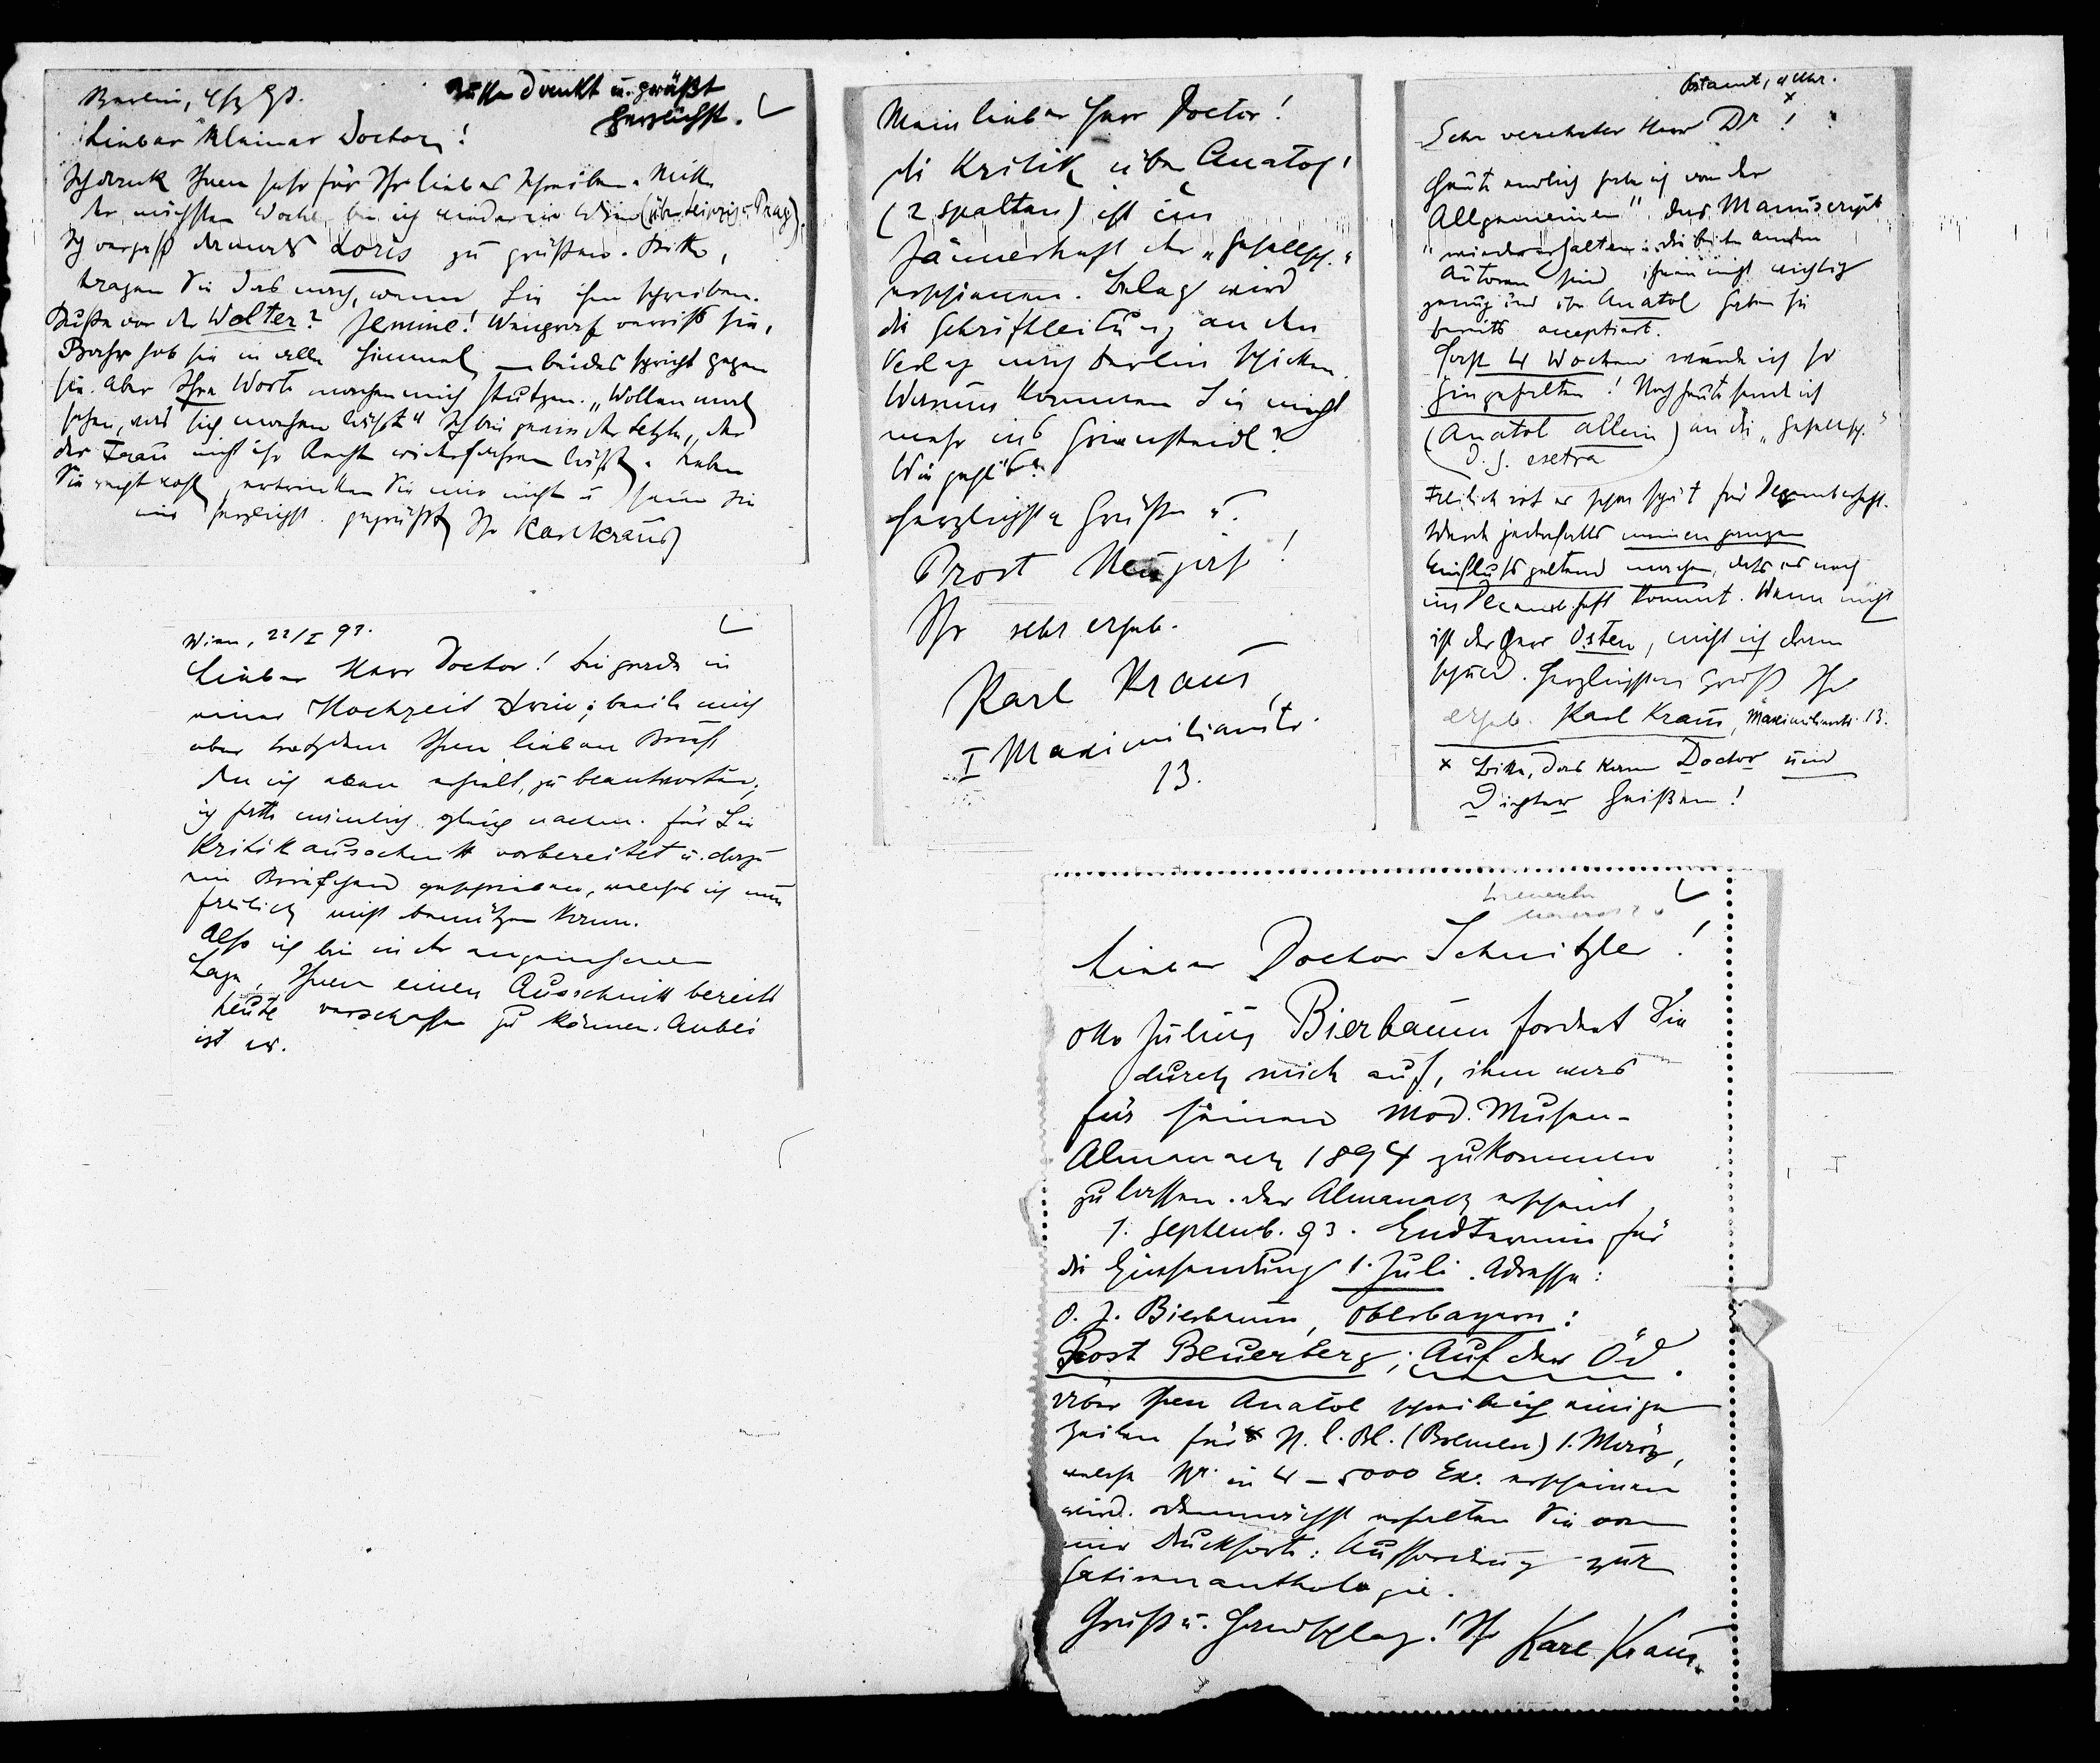 Berlin,
dankt u. grüßt
herzlichst.
Lieber kleiner Doctor!
Ich danke Ihnen sehr für Ihr liebes Schreiben. Mitte
der nächsten Woche bin ich wieder in Wien (über Leipzig u. Prag).
Ich vergaß damals Loris zu grüßen. Bitte,
tragen Sie das nach, wenn Sie ihm schreiben.
Duse vor der Wolter? Jemine! Wengraf verriß sie,
Bahr hob sie in alle Himmel – beides spricht gegen
sie. Aber Ihre Worte machen mich stutzen. „Wollen mal
sehen, was sich machen läßt“ Ich bin gewiss der letzte, der
der Frau nicht ihr Recht widerfahren läßt. Leben
Sie recht wohl, ertrinken Sie mir nicht u seien Sie
mir herzlichst gegrüßt Ihr Karl Kraus
Wien, 22/I 93.
Lieber Herr Doctor! Bin gerade in
einer Hochzeit drin; beeile mich
aber trotzdem Ihren lieben Brief
den ich eben erhielt, zu beantworten;
ich hatte nämlich gleich für Sie
Kritikausschnitt vorbereitet u. dazu
ein Briefchen geschrieben, welches ich nun
freilich nicht benützen kann.
Also ich bin in der angenehmen
Lage, Ihnen einen Ausschnitt bereits
heute verschaffen zu können. Anbei
ist er.
Mein lieber Herr Doctor!
die Kritik über Anatol
(2 Spalten) ist im
Jännerheft der „Gesellsch.“
erschienen. Beleg wird
die Schriftleitung an den
Verlag nach Berlin schicken.
Warum kommen Sie nicht
mehr ins Griensteidl?
Wie geht's?
Herzlichste Grüße u.
Prost Neujahr!
Ihr sehr ergeb.
Karl Kraus
I Maximilianstr.
13.
Postamt, 4 Uhr.
Sehr verehrter Herr Dr ! x
Heute endlich habe ich von der
„Allgemeinen“ das Manuscript
wiedererhalten: die beiden andern
Autoren sind ihnen nicht wichtig
genug und über Anatol haben sie
bereits acceptiert.
Fast 4 Wochen wurde ich so
hingehalten! Noch heute sende ich
(Anatol allein) an die „Gesellsch.“
d. h. extra
Freilich ist es schon spät für Dezemberheft.
Werde jedenfalls meinen ganzen
Einfluss geltend machen, dass es noch
ins Dezemberheft kommt. Wenn nicht
ist der Herr Osten, nicht ich daran
schuld. Herzlichsten Gruß Ihr
ergeb. Karl Kraus, Maximilianstr. 13.
x Bitte, das kann Doctor und
Dichter heißen!
Lieber Doctor Schnitzler!
Otto Julius Bierbaum fordert Sie
durch mich auf, ihm was
für seinen Mod. Musen-
Almanach 1894 zukommen
zu lassen. Der Almanach erscheint
1. Septemb. 93. Endtermin für
die Einsendung 1. Juli. Adresse:
O. J. Bierbaum, Oberbayern:
Post Beuerberg; Auf der Öd.
Über Ihren Anatol schreibe ich einige
Zeilen für N. l. Bl. (Bremen) 1. März,
welche Nr. in 4–5000 Ex. erscheinen
wird. Demnächst erhalten Sie von
mir Drucksorte: Aufforderung zur
Satirenanthologie.
Gruß u. Handschlag! Ihr Karl Kraus.